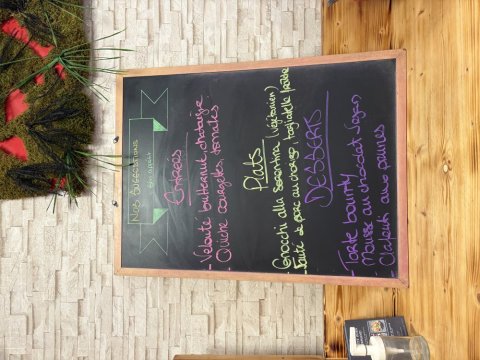 NOS SUGGESTIONS
Entrées
- Velouté butternut, chataîgne
- Quiche courgettes, tomates
Plats
- Gnocchi alla sorrentina (végétarien)
- Sauté de porc au chorizo, tagliatelle fraîche
DESSERTS
- Tarte bounty
- Mousse au chocolat
- Clafouti aux prunes